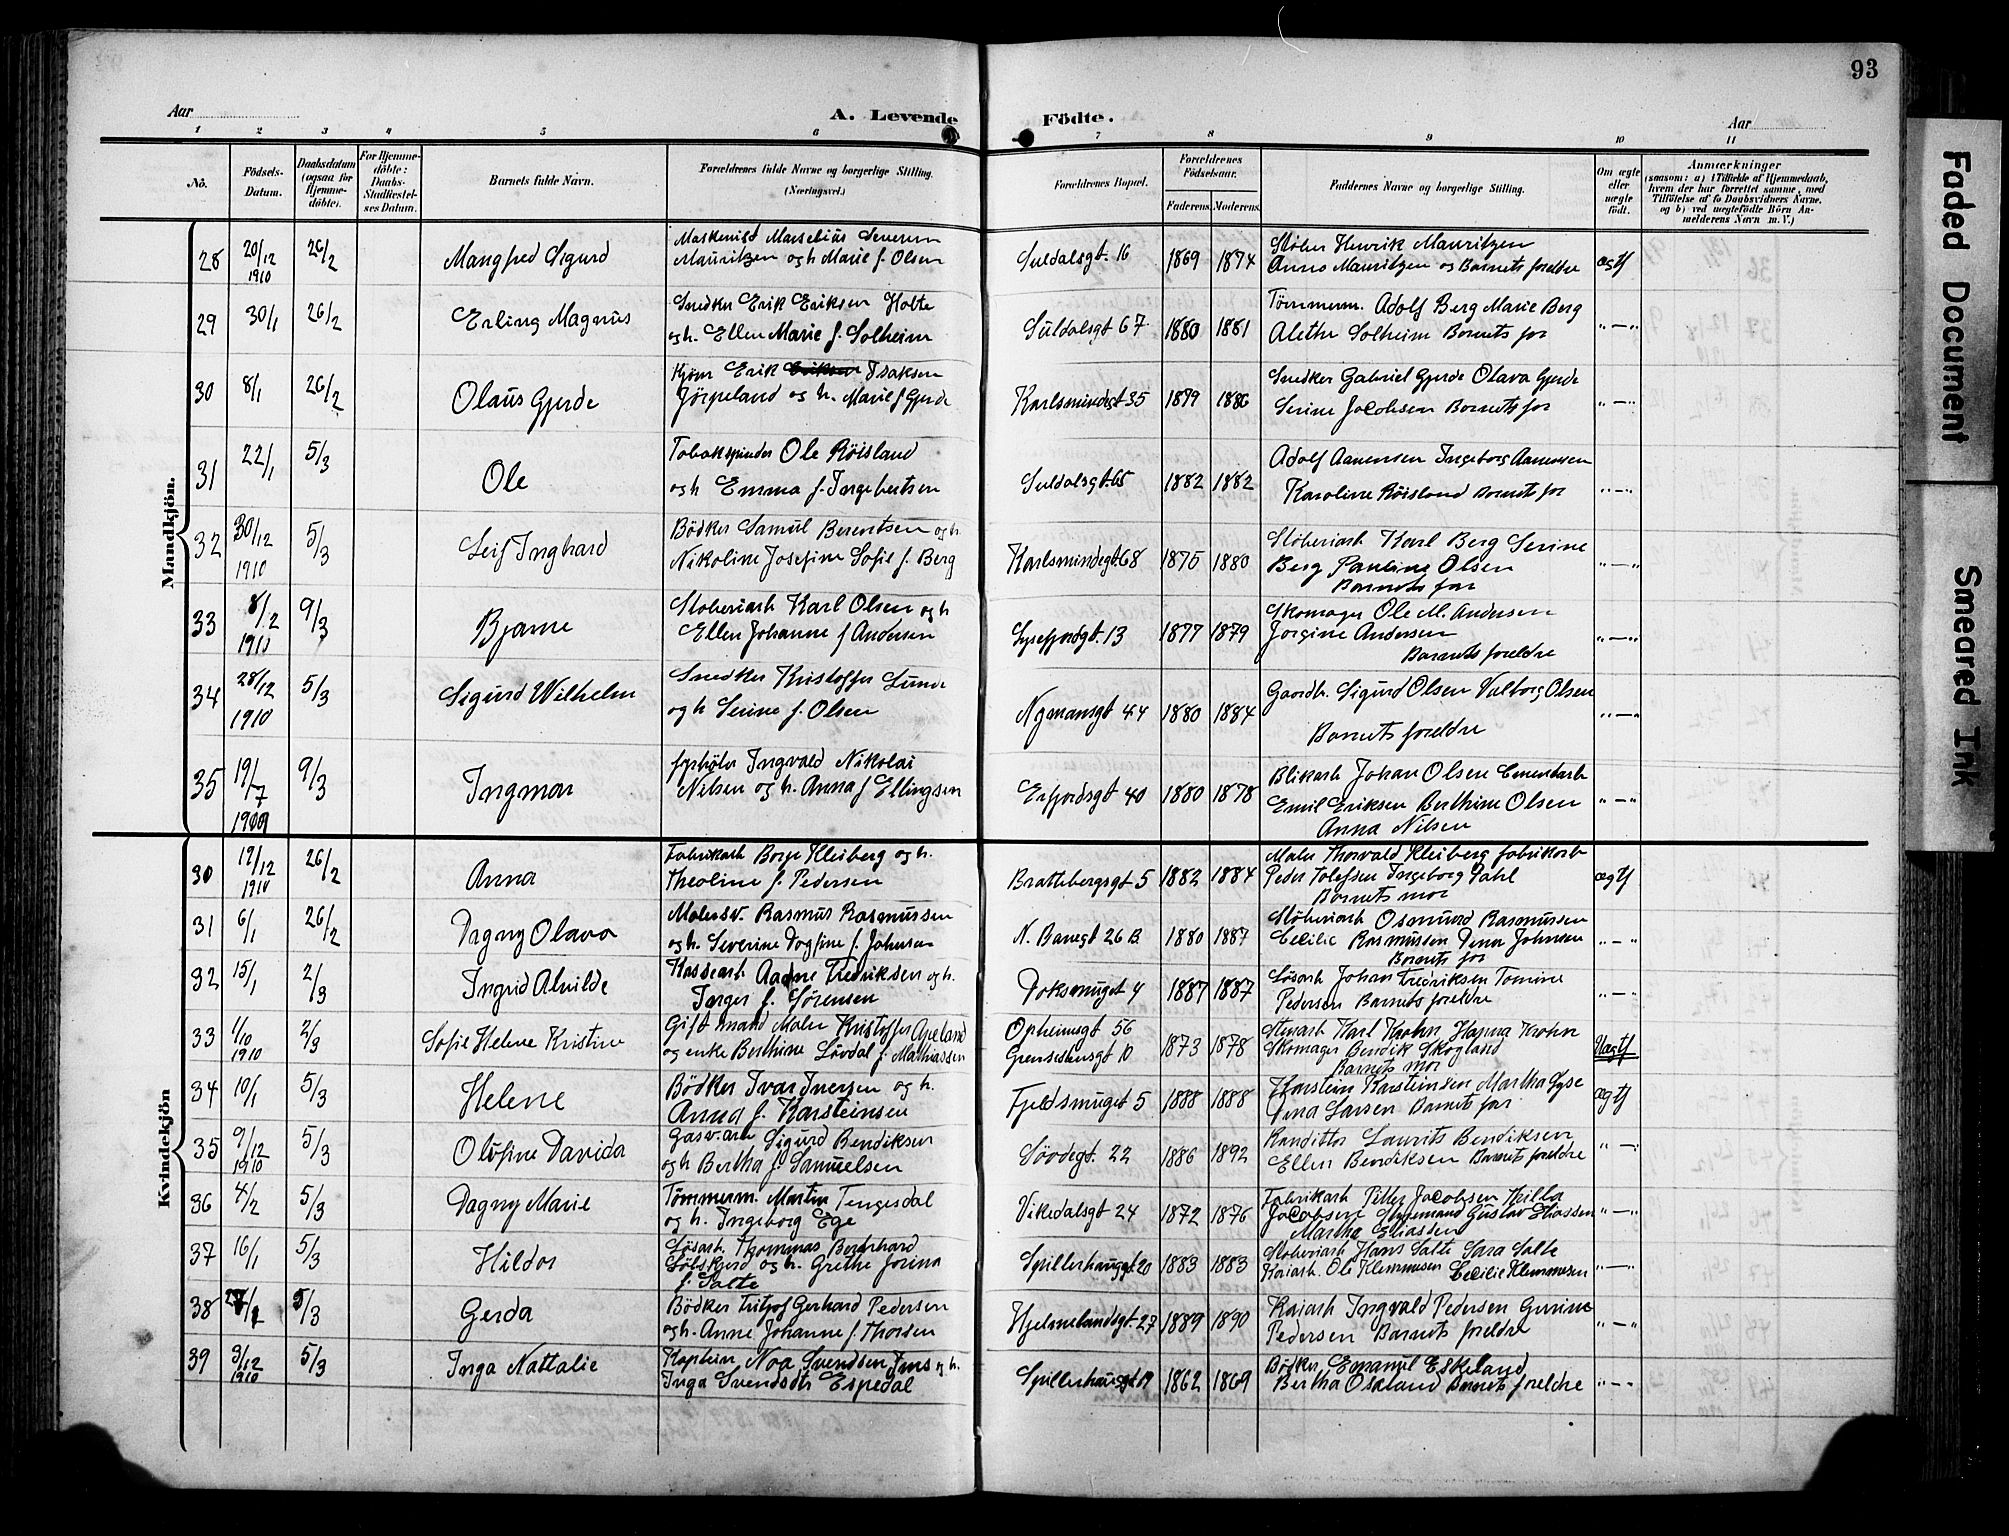 93
Aar
A. Levende
Födte.
Aar
1 2 3 4 5 6 7 8 9 10 11
No.
Födsels-
Datum.
Daabsdatum
(ogsaa for
Hjemme-
döbte).
For Hjemme-
döbte:
Daabs-
Stadfæstel-
ses Datum.
Barnets fulde Navn.
Forældrenes fulde Navne og borgerlige Stilling.
(Næringsvei.)
Forældrenes Bopæl.
Forældrenes
Födselsaar.
Faderens. Moderens.
Faddernes Navne og borgerlige Stilling.
Om ægte
eller
uægte
födt.
Anmærkninger
(saasom: a) i Tilfælde af Hjemmedaab,
hvem der har forrettet samme, med
Tilföielse af to Daabsvidners Navne,
og b) ved uægtefödte Börn An-
melderens Navn m. V.)
Mandkjön.
28 20/12 1910 26/2 Mangfred Sigurd
Maskenist Marselius Severin
Mauritzen og h Marie f. Olsen
Suldalsgt. 16 1869 1874
Støber Henrik Mauritzen
Anna Mauritzen og Barnets foreldre
ægtf
29 30/1 26/2 Erling Magnus
Snedker Erik Eriksen Holte
og h. Ellen Marie f. Solheim
Suldalsgt 67 1880 1881
Tömmerm. Adolf Berg Marie Berg
Alethe Solheim Barnets far
" — "
30 8/1 26/2 Olaus Gjerde
Kjører Erik Isaksen
Jörpeland og h. Marie f Gjerde
Karlsmindegt 35 1879 1886
Snedker Gabriel Gjerde Olava Gjerde
Serine Jacobsen Barnets far
" — "
31 22/1 5/3 Ole
Tobakspinder Ole Röisland
og h Emma f. Ingebertsen
Suldalsgt. 65 1882 1882
Adolf Aanensen Ingeborg Aanensen
Karoline Röisland Barnets far
" — "
32 30/12 1910 5/3 Leif Inghard
Bödker Samuel Berentsen og h.
Nikoline Josefine Sofie f. Berg
Karlsmindegt. 68 1875 1880
Støberiarb Karl Berg Serine
Berg Pauline Olsen
Barnets far
" — "
33 8/12 1910 9/3 Bjarne
Støberiarb Karl Olsen og h
Ellen Johanne f Andersen
Lysefjordgt. 13 1877 1879
Skomager Ole M. Andersen
Jorgine Andersen
Barnets foreldre
" — "
34 28/12 1910 5/3 Sigurd Wilhelm
Snedker Kristoffer Lunde
og h Serine f. Olsen
Nymansgt 44 1880 1884
Gaardb. Sigurd Olsen Valborg Olsen
Barnets foreldre
" — "
35 19/7 1909 9/3 Ingmar
Fyrbøter Ingvald Nikolai
Nilsen og h. Anna f Ellingsen
Erfjordsgt 40 1880 1878
Blikarb Johan Olsen Cementarb
Emil Eriksen Berthine Olsen
Anna Nilsen
" — "
Kvindekjön
30 12/12 1910 26/2 Anna
Fabrikarb Borge Kleiberg og h.
Theoline f. Pedersen
Brattebergsgt 5 1882 1884
Maler Thorvald Kleiberg fabrikarb
Peder Tolefsen Ingeborg Dahl
Barnets mor
ægtf
31 6/1 26/2 Dagny Olava
Malersv. Rasmus Rasmussen
og h. Severine Dagfine f. Johnsen
N. Banegt 26 B. 1880 1887
Støberiarb Osmund Rasmussen
Cecilie Rasmussen Dina Johnsen
Barnets far
" — "
32 15/1 2/3 Ingrid Alvilde
Kassearb Aadne Fredriksen og h.
Inger f. Sörensen
Doksmuget 4 1887 1887
Løsarb Johan Fredriksen Tomine
Pedersen Barnets foreldre
" — "
33 1/10 1910 2/3 Sofie Helene Kristine
Gift mand Maler Kristoffer Apeland
og enke Berthine Lövdal f. Mathiassen
Opheimsgt 56
Grensestensgt 10 1873 1878
Stuearb Karl Krohn Hanna Krohn
Skomager Bendik Skogland
Barnets mor
Uægtf
34 10/1 5/3 Helene
Bödker Ivar Iversen og h.
Anna f. Karsteinsen
Fjeldsmuget 5 1888 1888
Karstein Karsteinsen Martha Lyse
Dina Larsen Barnets far
ægtf
35 9/12 1910 5/3 Olufine Davida
Gasv. arb Sigurd Bendiksen
og h Bertha f. Samuelsen
Sövdegt. 22 1886 1892
Konditor Laurits Bendiksen
Ellen Bendiksen Barnets foreldre
" — "
36 4/2 5/3 Dagny Marie
Tömmerm. Martin Tengesdal
og h. Ingeborg Ege
Vikedalsgt 24 1872 1876
Fabrikarb Petter Jacobsen Hilla
Jacobsen Styrmand Gustav Eliassen
Martha Eliassen
" — "
37 16/1 5/3 Hildor
Løsarb. Thommas Bernhard
og h. Grethe Jorina
f. Salte
Spillerhauggt 20 1883 1883
Støberiarb Hans Salte Sara Salte
Kaiarb. Ole Klemmesen Cecilie Klemmesen
" — "
38 5/3 Gerda
Bödker Fritjof Gerhard Pedersen
og h. Anne Johanne f. Thorsen
Hjelmelandsgt 27 1889 1890
Kaiarb Ingvald Pedersen Gurine
Pedersen Barnets foreldre
" — "
39 3/12 1910 5/3 Inga Nattalie
Kaptein Noa Svendsen Ims og h.
Inga Svendsdtr Espedal
Spillerhauggt 19 1862 1869
Bødker Emanuel Eskeland
Bertha Oskland Barnets foreldre
" — "
Faded Document
Smeared Ink